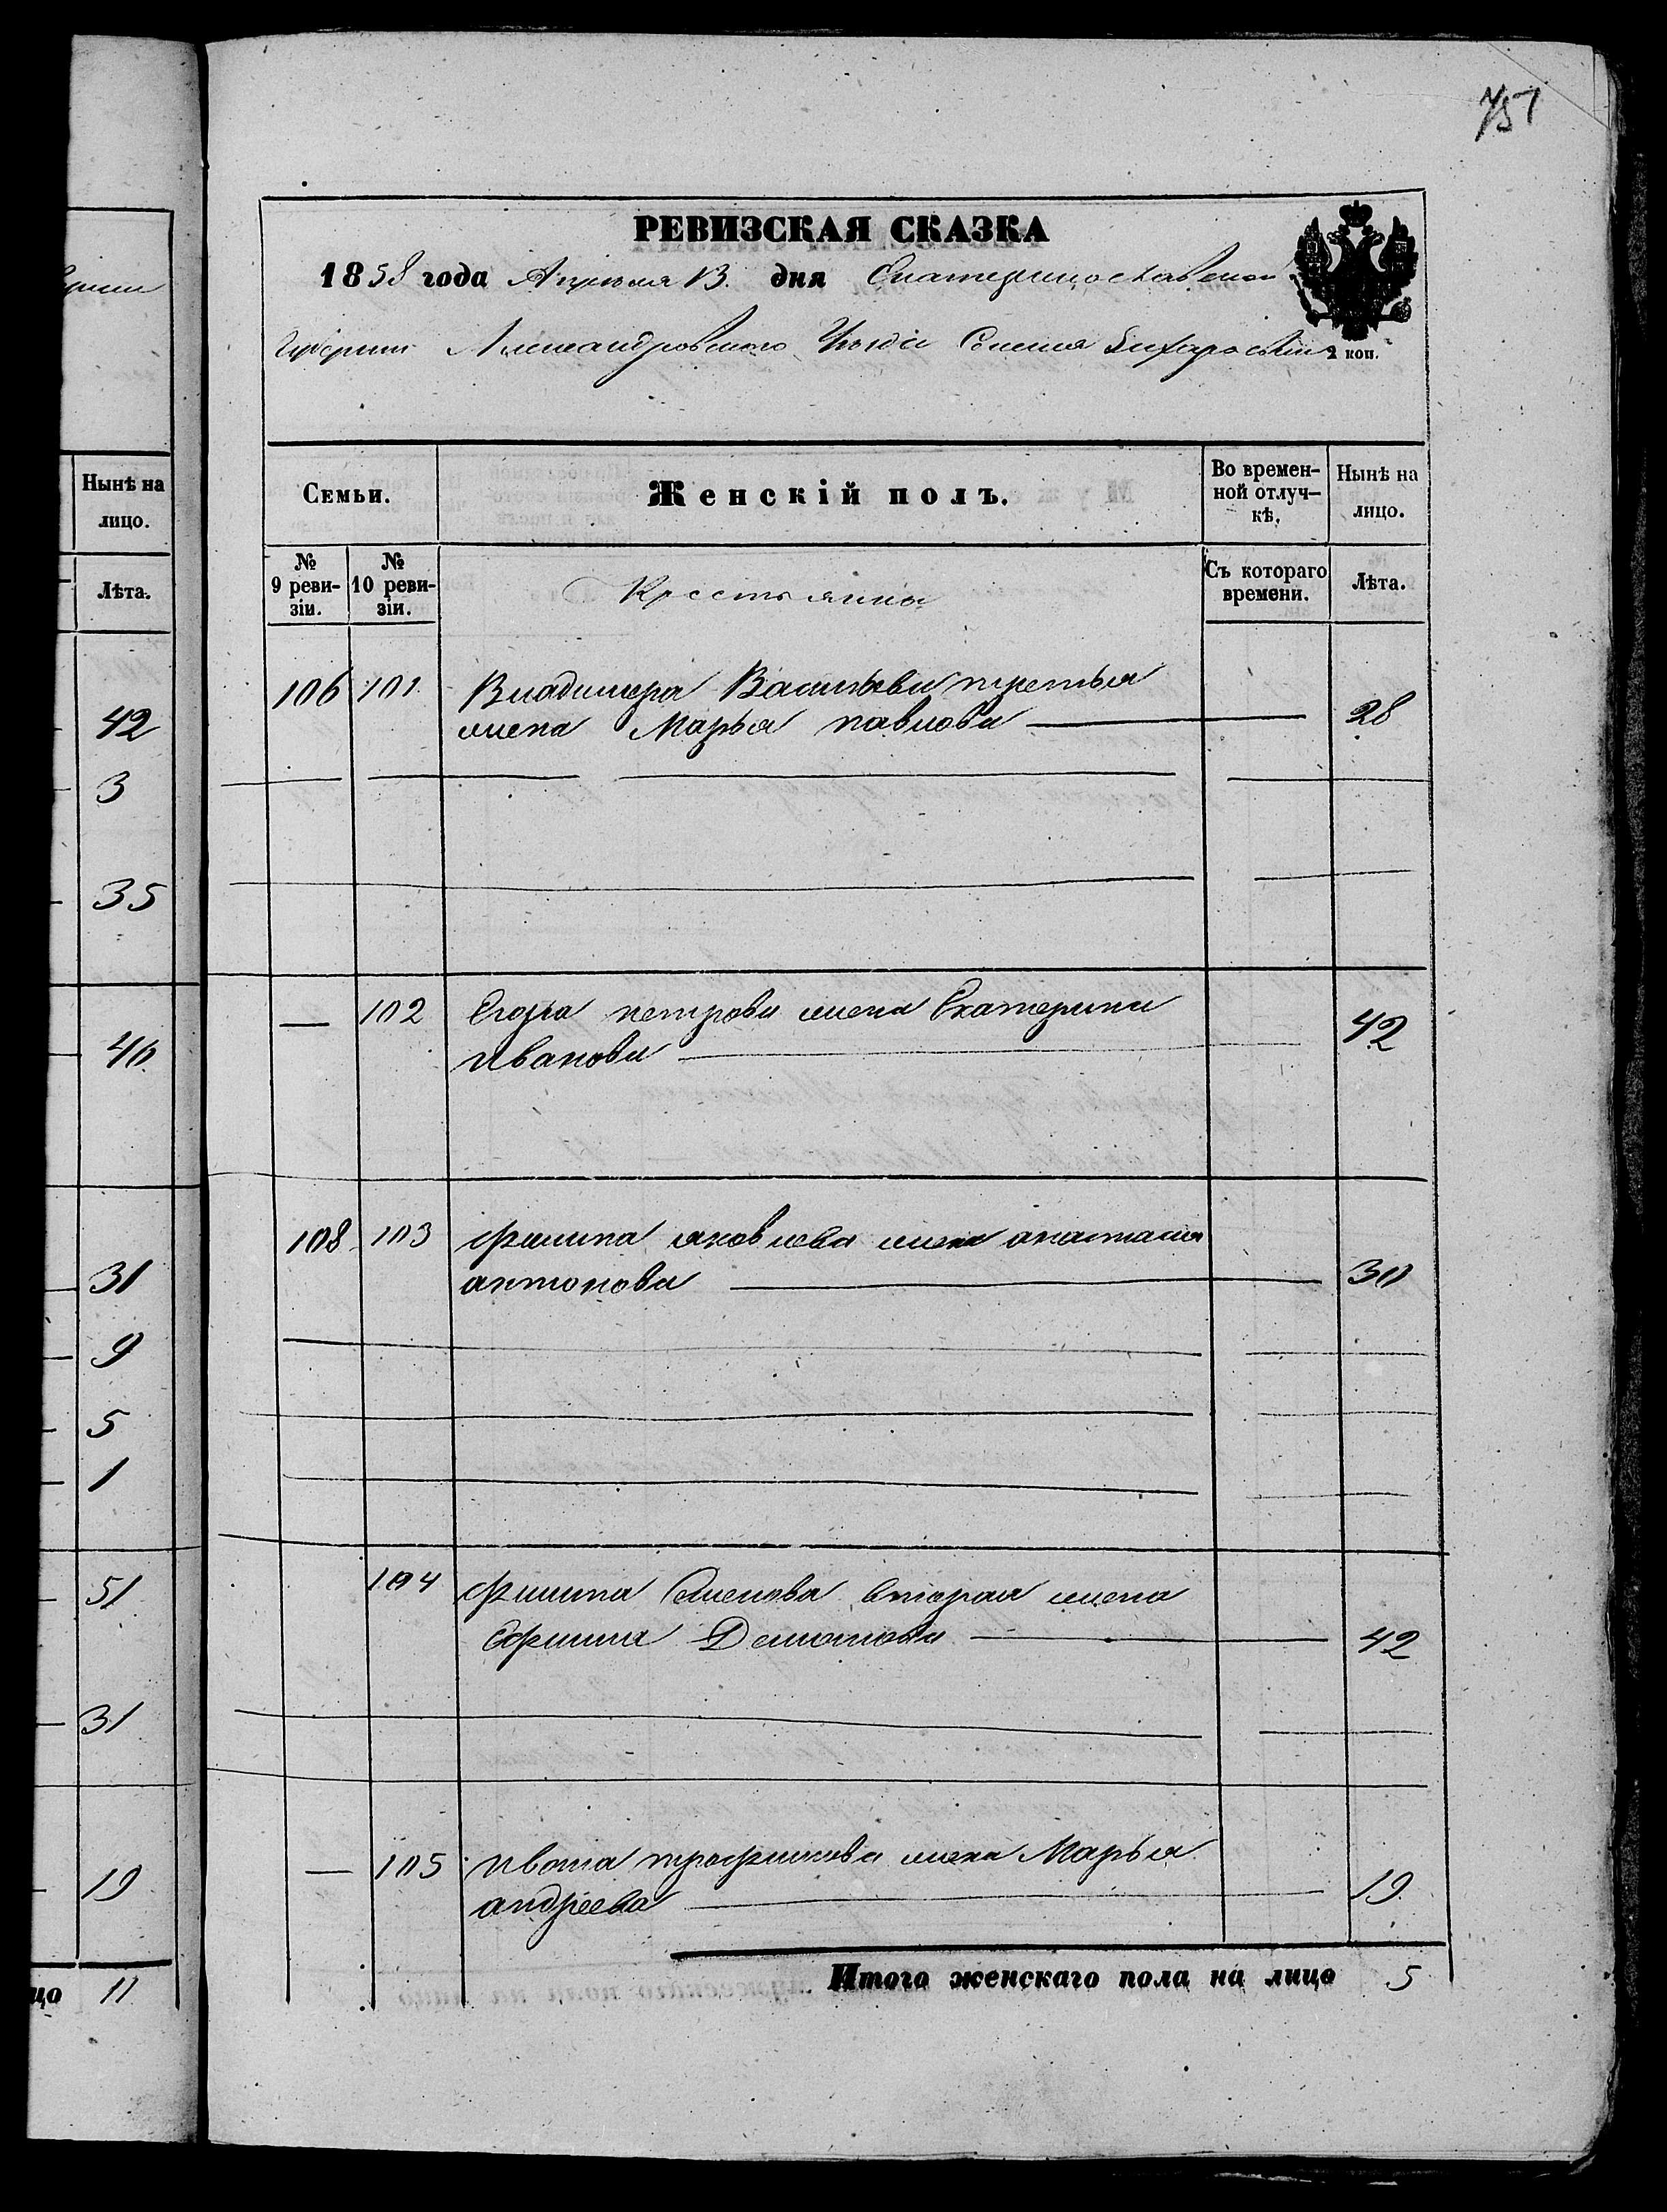 751
РЕВИЗСКАЯ СКАЗКА
1858 года Апреля 13. дня Екатеринославской
Губернии Александровского Уѣзда Селения
2 коп.
Семьи.
Женскій полъ.
Во времен-
ной отлуч-
кѣ.
Нынѣ на
лицо.
№
9 реви-
зіи.
№
10 реви-
зіи.
Съ котораго
времени.
Лѣта.
106 101 Владимера Васильева третья
жена Марья павлова 28
— 102 Егора петрова жена Екатерина
иванова 42
108 103 филипа яковлева жена анастасия
антонова 30
104 филипа Семенова вторая жена
Ефимия 42
— 105 ивана трофимова жена Марья
андреева 19
Итого женскаго пола на лицо 5
Нынѣ на
лицо.
Лѣта.
42
3
35
46
31
9
5
1
51
31
19
цо 11